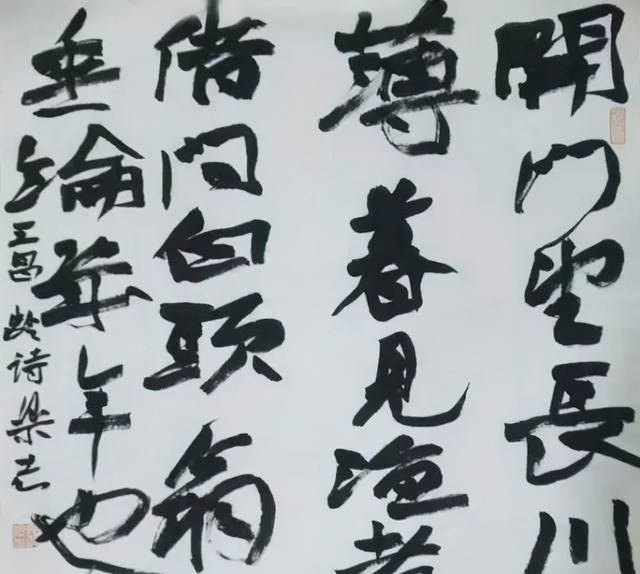 開門望長川
薄暮見漁者
借问白頭翁
垂綸幾年也
王昌龄诗梁志